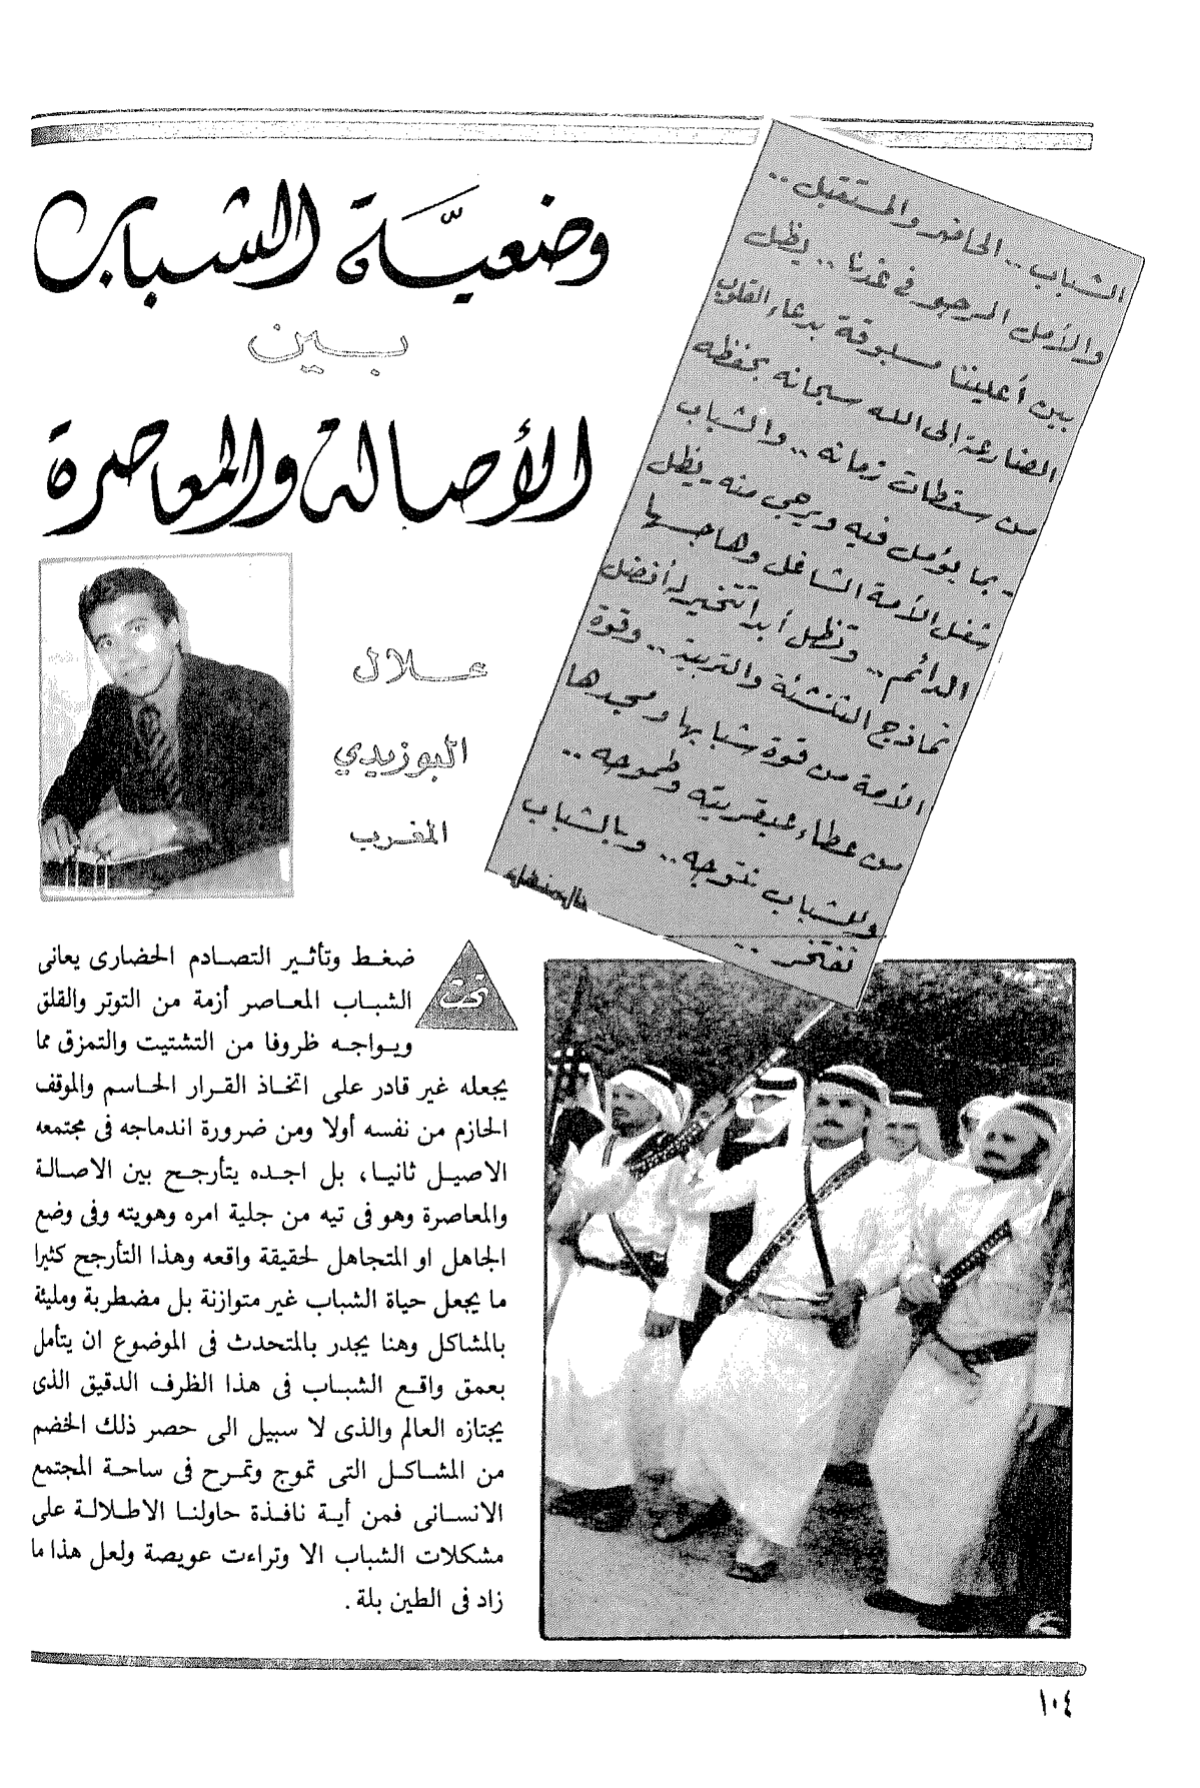 وضعيَّة الشباب
بين
الأصالة والمعاصرة
علال
البوزيدي
المغرب
الشباب .. الحاضر والمستقبل ..
والأمل المرجو في غدنا .. يظل
بين أعليننا مسبوقة بدعاء القلوب
الضارعة الى الله سبحانه بحفظه
من سقطات زمانه .. والشباب
- بما يؤمل فيه ويرجى منه - يظل
شغل الأمة الشاغل وهاجسها
الدائم .. وتظل أبدا تتخير له أفضل
نماذج التنشئة والتربية .. وقوة
الأمة من قوة شبابها ومجدها
من عطاء عبقريته وطموحه ..
وللشباب نتوجه .. وبالشباب
نفتخر ..
المنهل
تحت ضغط وتأثير التصادم الحضارى يعانى
الشباب المعاصر أزمة من التوتر والقلق
ويواجه ظروفا من التشتيت والتمزق مما
يجعله غير قادر على اتخاذ القرار الحاسم والموقف
الحازم من نفسه أولا ومن ضرورة اندماجه فى مجتمعه
الاصيل ثانيا، بل اجده يتأرجح بين الاصالة
والمعاصرة وهو فى تيه من جلية امره وهويته وفى وضع
الجاهل او المتجاهل لحقيقة واقعه وهذا التأرجح كثيرا
ما يجعل حياة الشباب غير متوازنة بل مضطربة ومليئة
بالمشاكل وهنا يجدر بالمتحدث فى الموضوع ان يتأمل
بعمق واقع الشباب فى هذا الظرف الدقيق الذى
يجتازه العالم والذى لا سبيل الى حصر ذلك الخضم
من المشاكل التى تموج وتمرح فى ساحة المجتمع
الانسانى فمن أية نافذة حاولنا الاطلالة على
مشكلات الشباب الا وتراءت عويصة ولعل هذا ما
زاد فى الطين بلة .
١٠٤